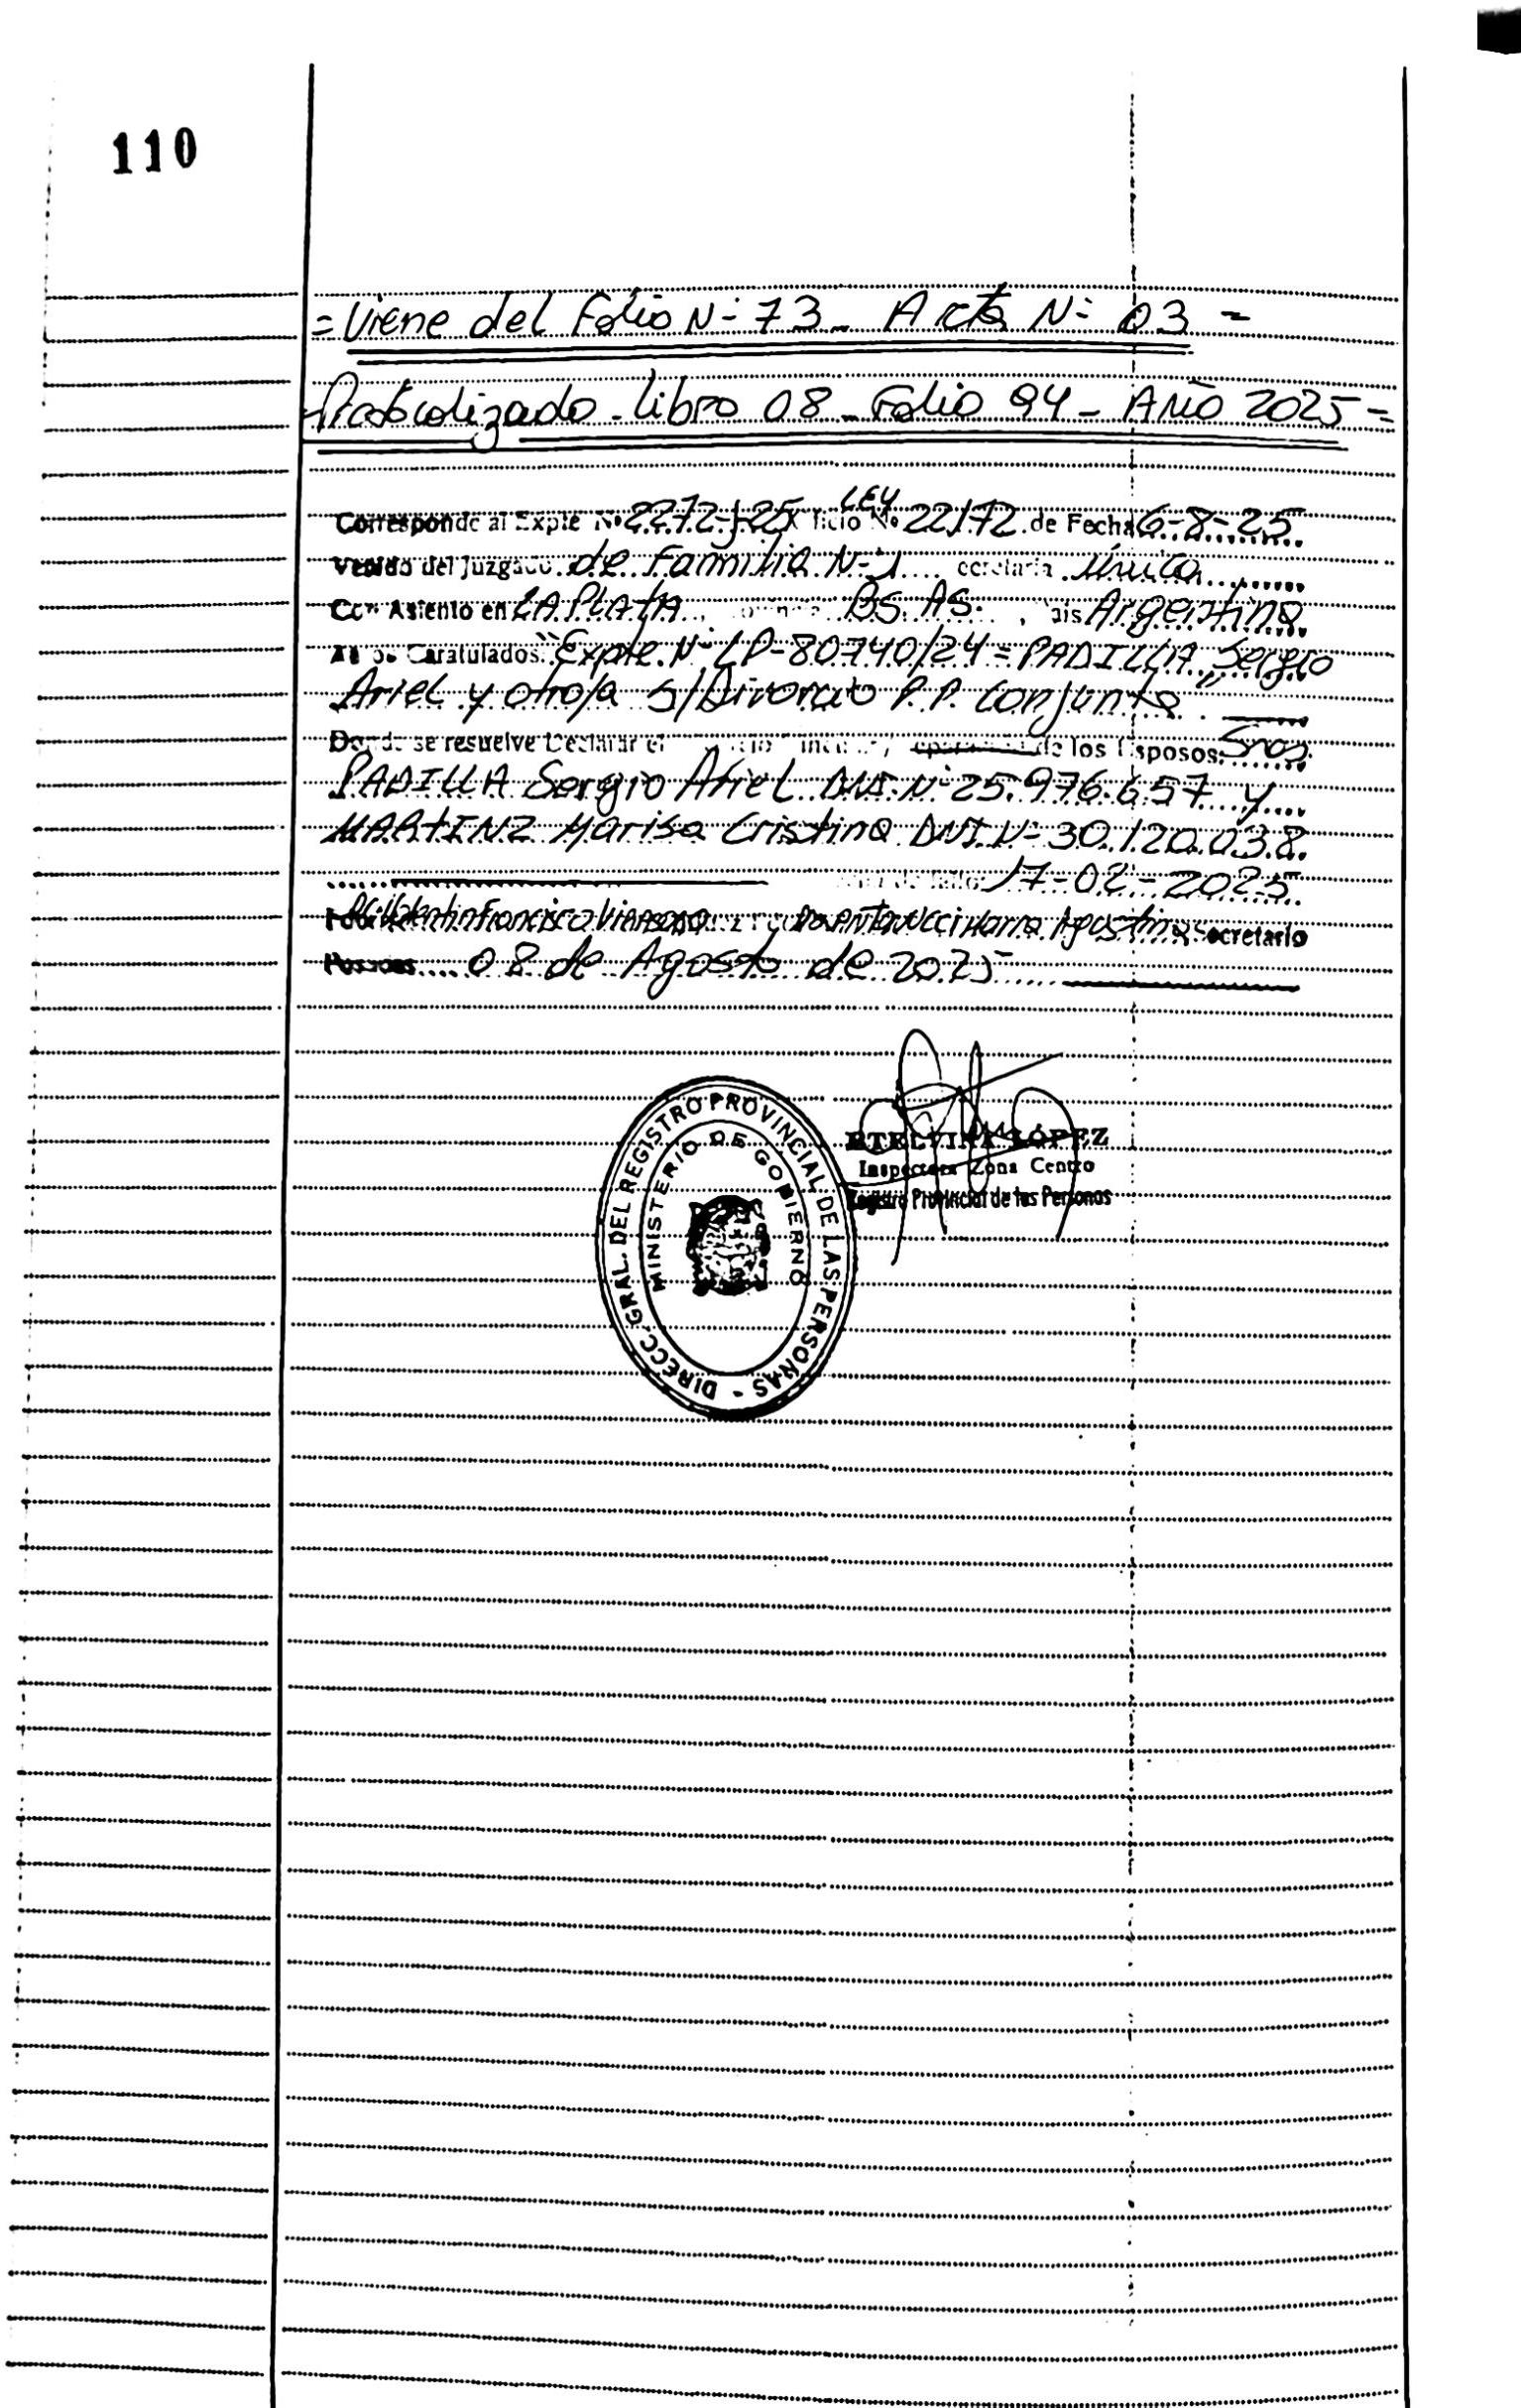 110
=Viene del Folio N- 73_ Acta N- 03 =
=Protocolizado_Libro 08_Folio 94_ Año 2025=
LEY
Corresponde al Expte Nº 2272-J-25 ficio Nº 22172 de Fecha 6-8-25
Venido del Juzgado de Familia N-1 ecretaria Única
Con Asiento en LA PLATA, BS. AS. , ais Argentina
Caratulados "Expte. N- LP-80740/24=PADILLA, Sergio
Ariel y otro/a S/Divorcio P.P. Conjunta"
Donde se resuelve Declarar el de los Esposos Sres.
PADILLA Sergio Ariel DNI. N- 25.976.657 y
MARTINZ Marisa Cristina DNI N- 30.120.038.
17-02-2025
Francisco María Agustina Secretario
Posadas 08 de Agosto de 2025
ETELVINA LÓPEZ
Inspectora Zona Centro
Registro Provincial de las Personas
DIRECC. GRAL. DEL REGISTRO PROVINCIAL DE LAS PERSONAS -
MINISTERIO DE GOBIERNO